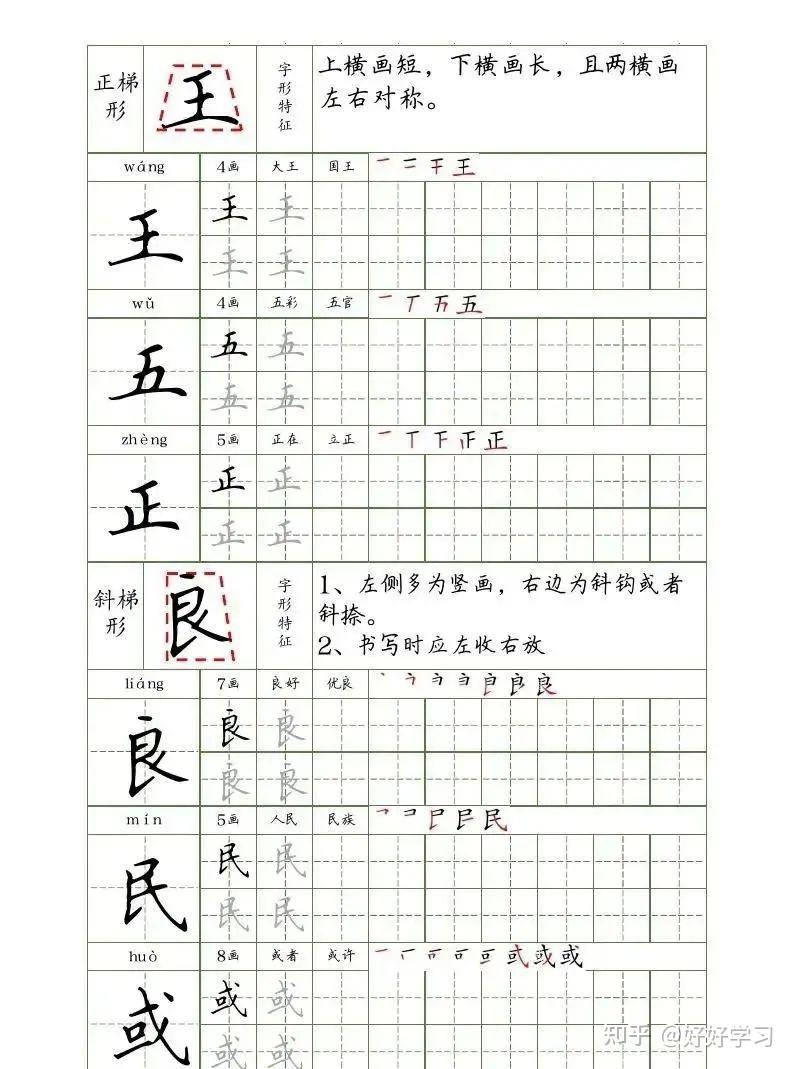 正梯形
王
字形特征
上横画短，下横画长，且两横画
左右对称。
wáng 4画 大王 国王 一 二 干 王
王 王 王
王 王
wǔ 4画 五彩 五官
五 五 五
五 五
zhèng 5画 正在 立正
正 正 正
正 正
斜梯形
良
字形特征
1、左侧多为竖画，右边为斜钩或者
斜捺。
2、书写时应左收右放
liáng 7画 良好 优良
良 良 良
良 良
mín 5画 人民 民族
民 民 民
民 民
huò 8画 或者 或许
或 或 或
或 或
知乎 @好好学习